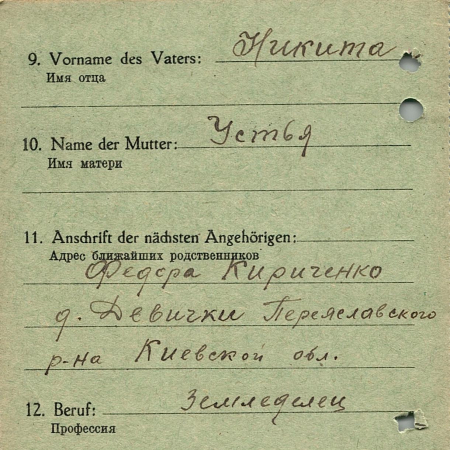 9. Vorname des Vaters: Никита
Имя отца
10. Name der Mutter: Устья
Имя матери
11. Anschrift der nächsten Angehörigen:
Адрес ближайших родственников
Федора Кириченко
д. Девички Переяславского
р-на Киевской обл.
12. Beruf: Земледелец
Профессия